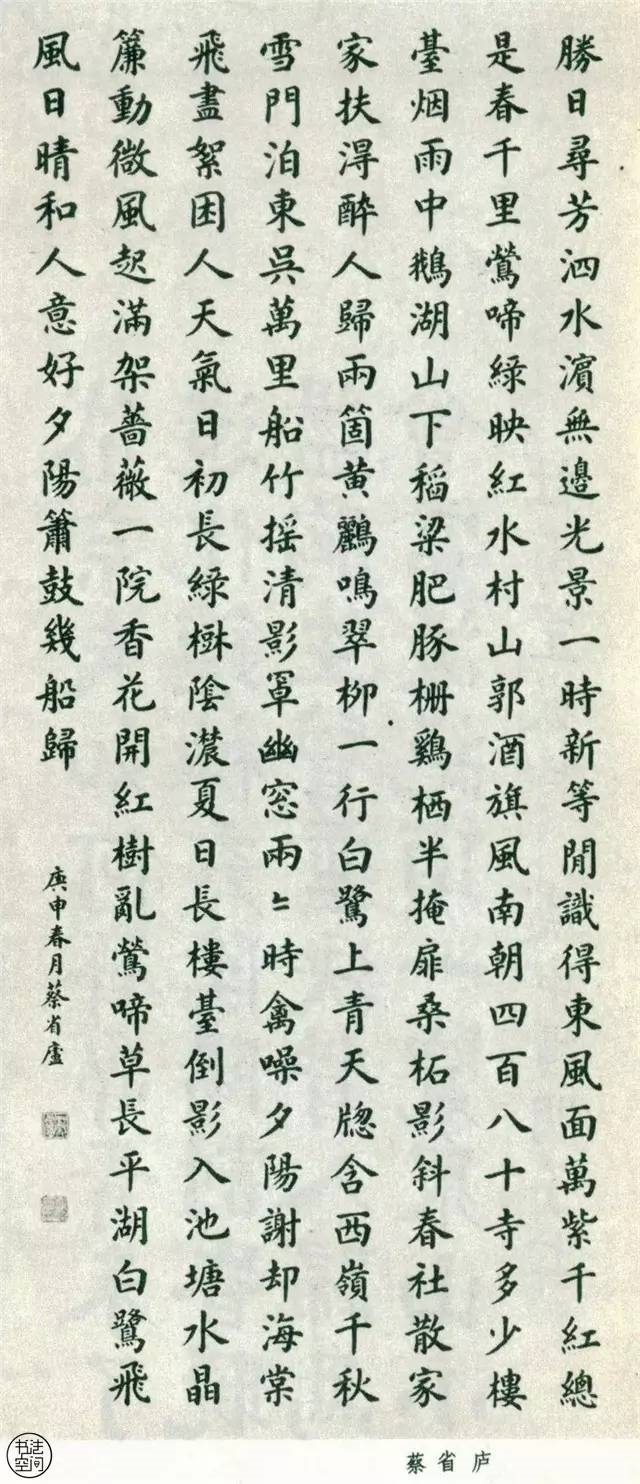 勝日尋芳泗水濵無邊光景一時新等閒識得東風面萬紫千紅總
是春千里鶯啼緑映紅水村山郭酒旗風南朝四百八十寺多少樓
臺烟雨中鵝湖山下稻粱肥豚栅鷄栖半掩扉桑柘影斜春社散家
家扶得醉人歸兩箇黄鸝鳴翠柳一行白鷺上青天牕含西嶺千秋
雪門泊東吳萬里船竹摇清影罩幽窓兩〻時禽噪夕陽謝却海棠
飛盡絮困人天氣日初長緑樹陰濃夏日長樓臺倒影入池塘水晶
簾動微風起滿架蔷薇一院香花開紅樹亂鶯啼草長平湖白鷺飛
風日晴和人意好夕陽簫鼓幾船歸
庚申春月蔡省廬
蔡省庐
书法空间